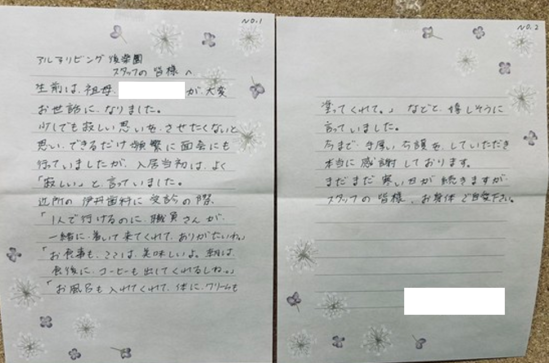 NO.1
アルヌリビング後楽園
スタッフの皆様へ
生前は、祖母 が、大変
お世話になりました。
少しでも寂しい思いをさせたくないと
思い、できるだけ頻繁に面会にも
行っていましたが、入居当初は、よく
「寂しい」と言っていました。
近所の伊丹歯科に受診の際
「1人で行けるのに、職員さんが、
一緒に着いて来てくれて、ありがたいわ。」
「お食事も、ここは、美味しいよ。朝は、
食後に、コーヒーも出してくれるしね。」
「お風呂も入れてくれて、体に、クリームも
NO.2
塗ってくれて。」などと、嬉しそうに
言っていました。
まで手厚い看護をしていただき
本当に感謝しております。
まだまだ寒い日が続きますが、
スタッフの皆様、お身体ご自愛下さい。